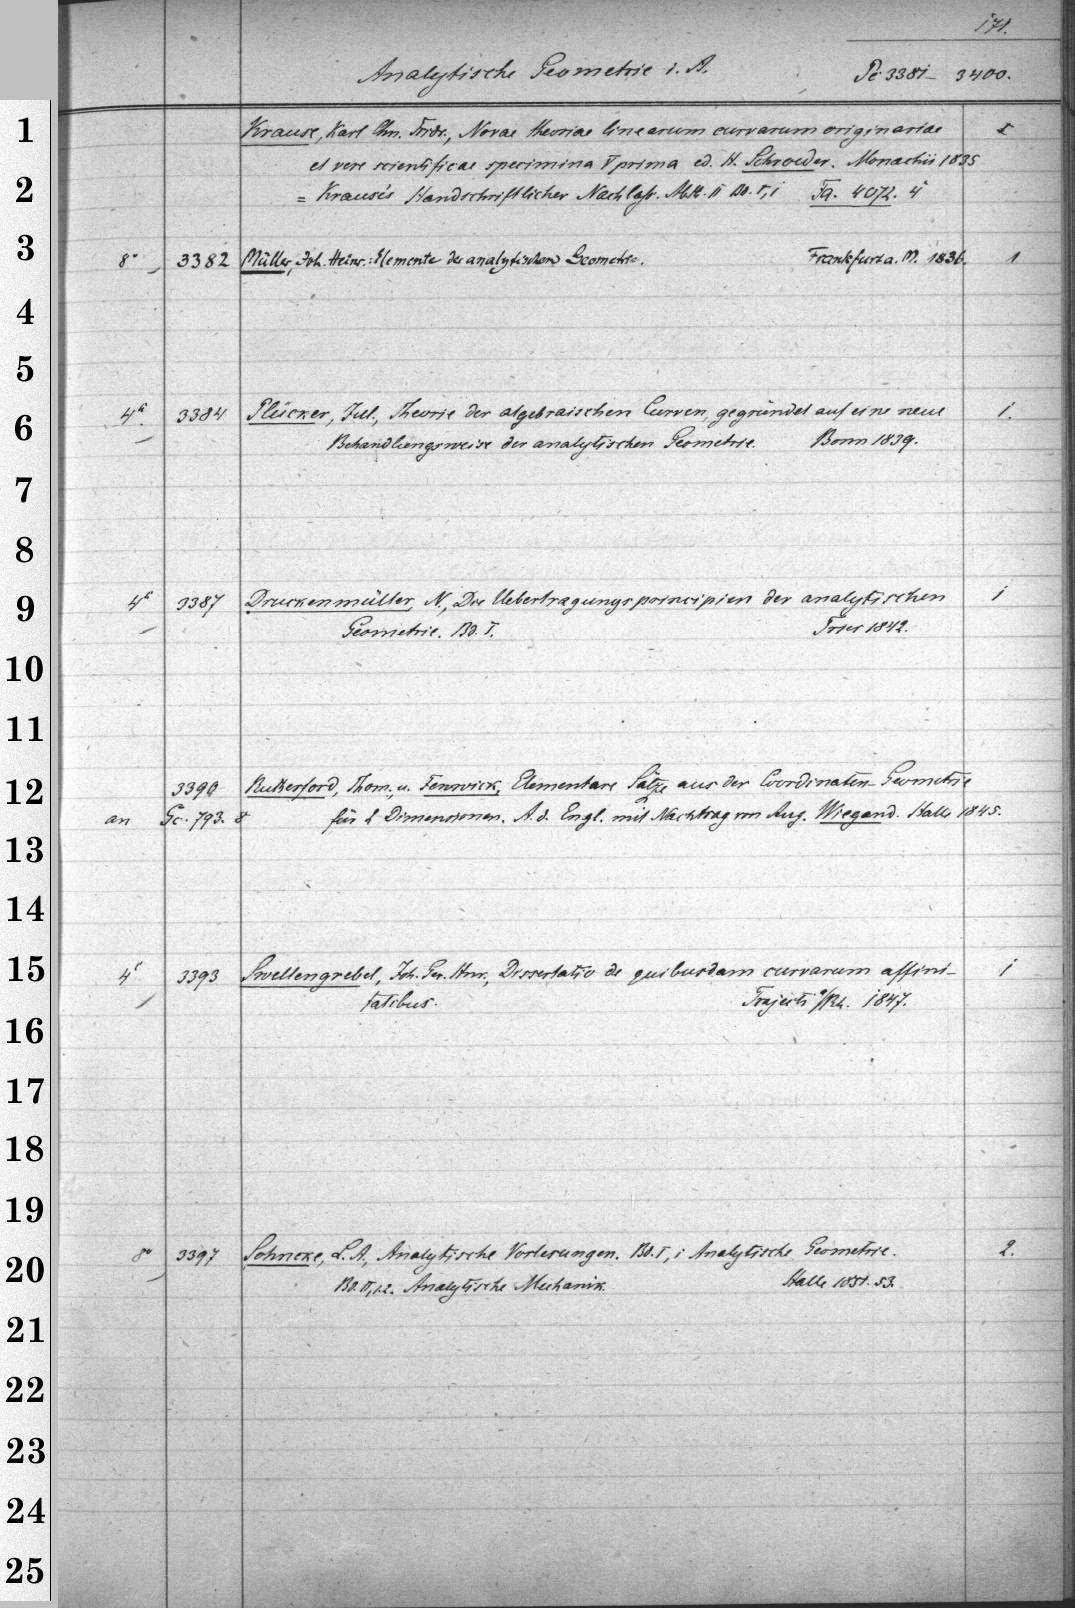 171.
Analytische Geometrie i. A. Pc 3381- 3400.
1 Krause, Karl Chn. Frdr., Novae theoriae linearum curvarum originariae
et vere scientificae specimina V prima ed. H. Schroeder. Monachii 1835
2 = Krause's Handschriftlicher Nachlaß. Abth. II Bd. I, 1 Fa. 4072. 4°
3 8° 3382 Müller, Joh. Heinr.: Elemente der analytischen Geometrie. Frankfurt a. M. 1836. 1
4
5
6 4° 3384 Plücker, Jul., Theorie der algebraischen Curven, gegründet auf eine neue 1.
Behandlungsweise der analytischen Geometrie. Bonn 1839.
7
8
9 4° 3387 Druckenmüller, N., Die Uebertragungsprincipien der analytischen 1
Geometrie. Bd. I. Trier 1842.
10
11
12 3390 Rutherford, Thom., u. Fenwick, Elementare Sätze aus der Coordinaten-Geometrie
an Gc. 793. 8° für 2 Dimensionen. A. d. Engl. mit Nachtrag von Aug. Wiegand. Halle 1845.
13
14
15 4° 3393 Swellengrebel, Joh. Ger. Hnr., Dissertatio de quibusdam curvarum affini- 1
tatibus. Trajecti a/Rh. 1847.
16
17
18
19
20 8° 3397 Sohncke, L. A., Analytische Vorlesungen. Bd. I, 1 Analytische Geometrie. 2.
Bd. II, 1.2. Analytische Mechanik. Halle 1851. 53.
21
22
23
24
25